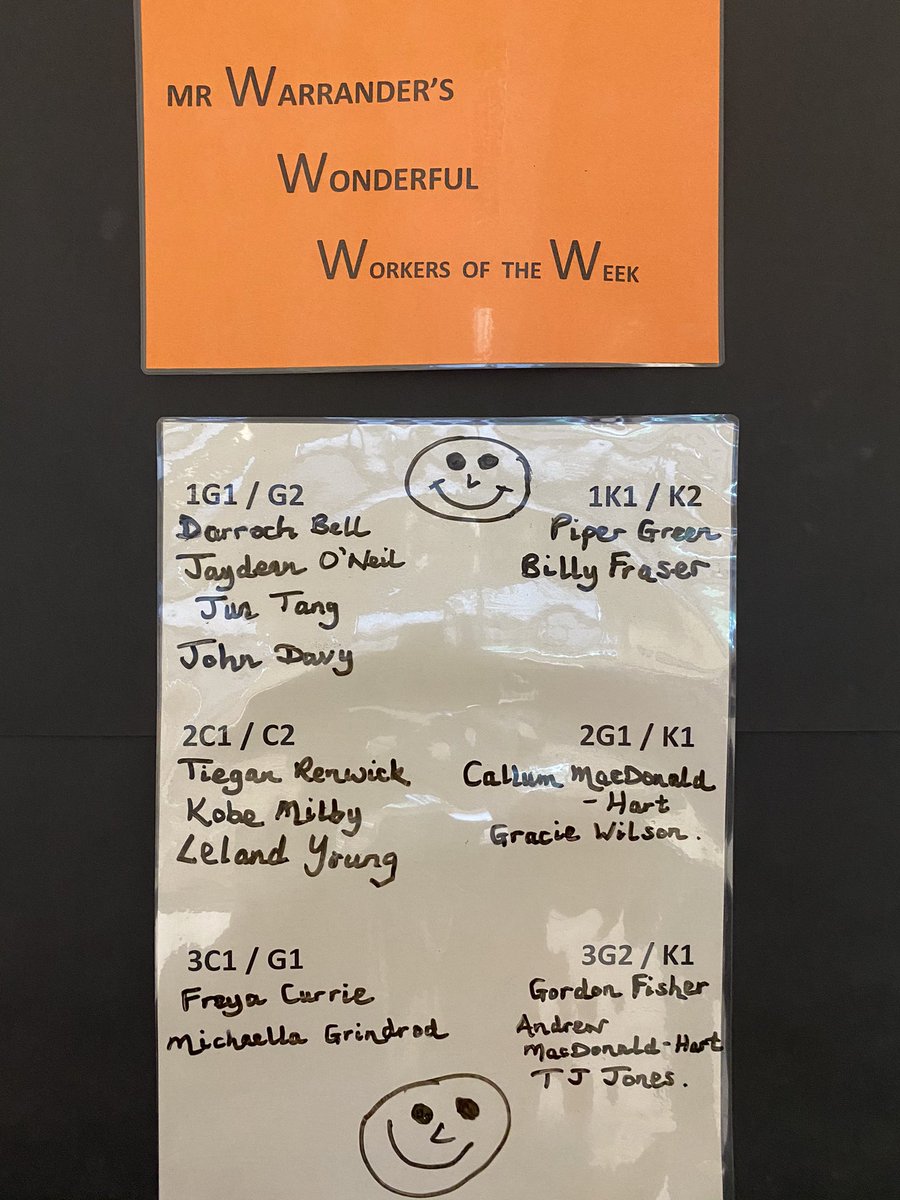 MR WARRANDER'S
WONDERFUL
WORKERS OF THE WEEK
1G1 / G2
Darroch Bell
Jaydenn O'Neil
Jun Tang
John Davy
1K1 / K2
Piper Green
Billy Fraser
2C1 / C2
Tiegan Renwick
Kobe Milby
Leland Young
2G1 / K1
Callum MacDonald
- Hart
Gracie Wilson.
3C1 / G1
Freya Currie
Michaella Grindrod
3G2 / K1
Gordon Fisher
Andrew
MacDonald-Hart
TJ Jones.